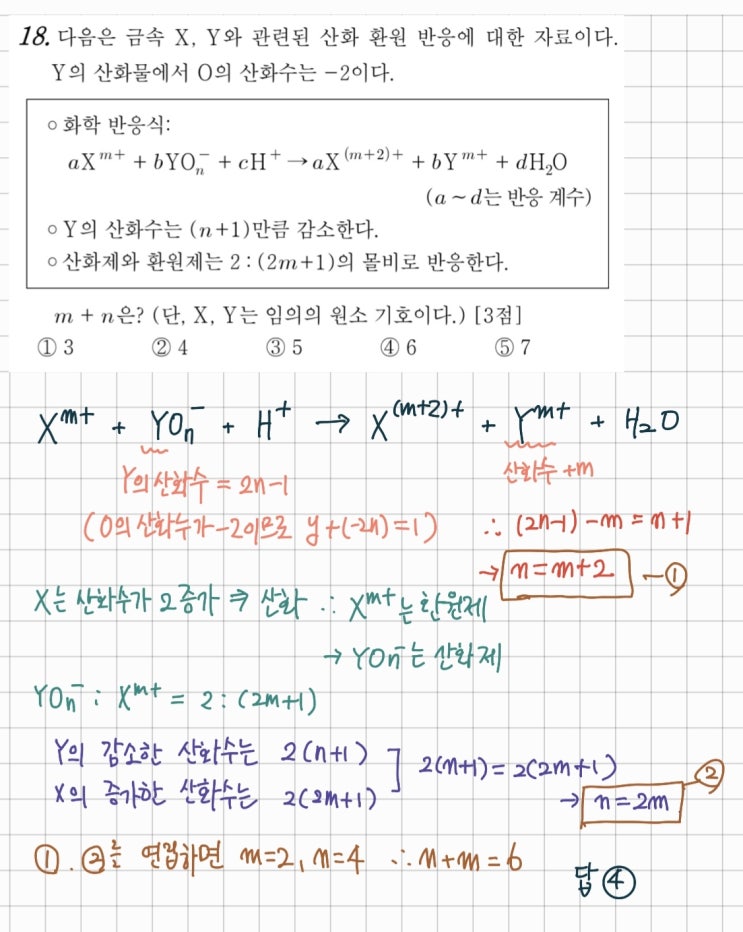 18. 다음은 금속 X, Y와 관련된 산화 환원 반응에 대한 자료이다.
Y의 산화물에서 O의 산화수는 −2이다.
○ 화학 반응식:
aX^{m+} + bYO_n^- + cH^+ → aX^{(m+2)+} + bY^{m+} + dH_2O
(a ~ d는 반응 계수)
○ Y의 산화수는 (n+1)만큼 감소한다.
○ 산화제와 환원제는 2 : (2m+1)의 몰비로 반응한다.
m + n은? (단, X, Y는 임의의 원소 기호이다.) [3점]
① 3 ② 4 ③ 5 ④ 6 ⑤ 7
X^{m+} + YO_n^- + H^+ → X^{(m+2)+} + Y^{m+} + H_2O
Y의 산화수 = 2n-1 산화수 +m
(O의 산화수가 -2이므로 y+(-2n)=1) ∴ (2n-1)-m = n+1
→ n=m+2 -①
X는 산화수가 2 증가 ⇒ 산화 ∴ X^{m+}는 환원제
→ YO_n^-는 산화제
YO_n^- : X^{m+} = 2 : (2m+1)
Y의 감소한 산화수는 2(n+1)
X의 증가한 산화수는 2(2m+1)
2(n+1) = 2(2m+1)
→ n=2m ②
①, ②를 연립하면 m=2, n=4 ∴ n+m = 6
답 ④